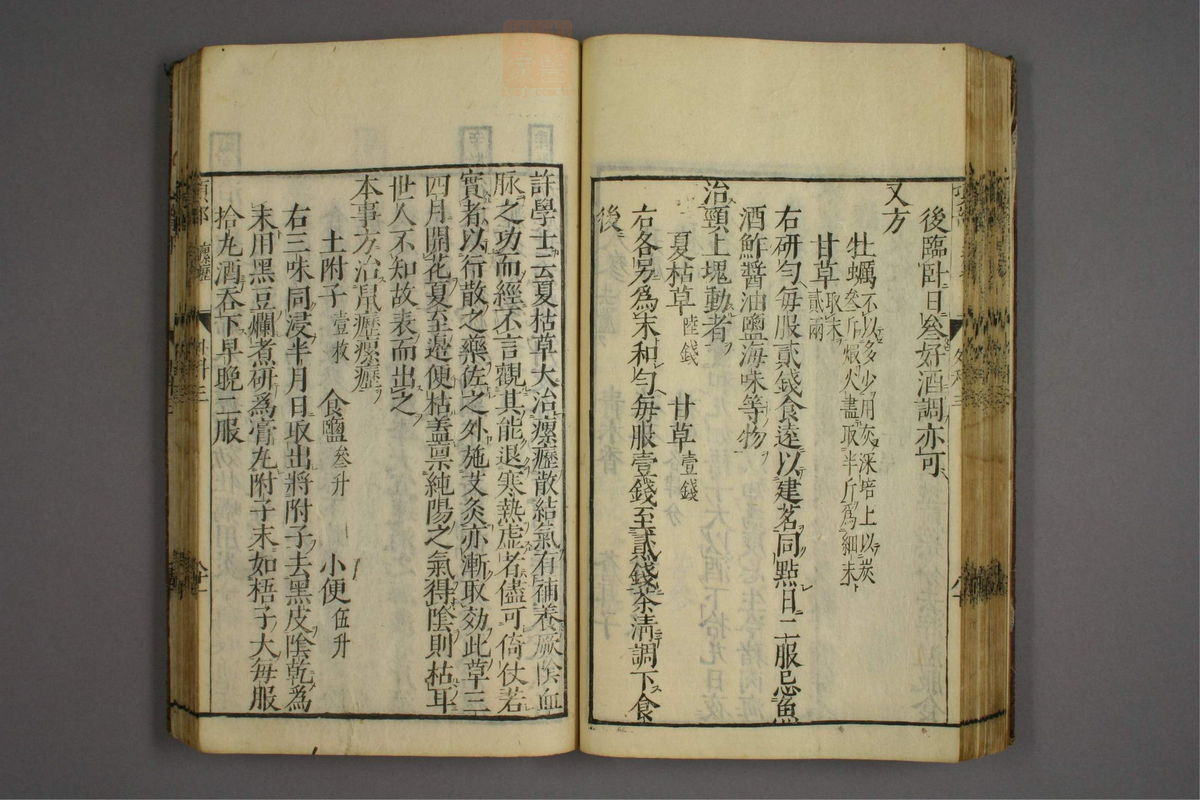 後臨卧日叄好酒調亦可
又方
牡蠣 不以多少用灰深培上以炭
叄斤煅火盡取半斤爲細末
甘草 取末
貳兩
右研勻每服貳錢食遠以建茗同點日二服忌魚
酒鮓醬油鹽海味等物
治頸上塊動者
夏枯草 陸錢 甘草 壹錢
右各另爲末和勻每服壹錢至貳錢茶清調下食
後
許學士云夏枯草大治瘰癧散結氣有補養厥陰血
脉之功而經不言觀其能退寒熱虛者儘可倚仗若
實者以行散之藥佐之外施艾灸亦漸取效此草三
四月開花夏至邊便枯盖禀純陽之氣得陰則枯耳
世人不知故表而出之
本事方治鼠癧瘰癧
土附子 壹枚 食鹽 叄升 小便 伍升
右三味同浸半月日取出將附子去黑皮陰乾爲
末用黑豆爛煮研爲膏丸附子末如梧子大每服
拾丸酒吞下早晚二服